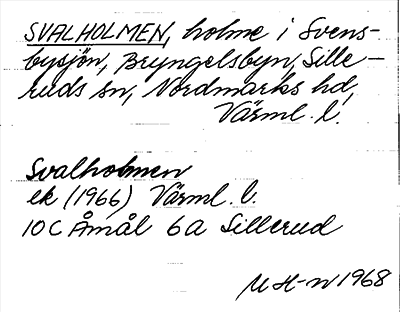 SVALHOLMEN, holme i Svens-
bysjön, Bryngelsbyn, Sille-
ruds sn, Nordmarks hd,
Värml. l.
Svalholmen
ek (1966) Värml. l.
10C Åmål 6a Sillerud
M H-n 1968